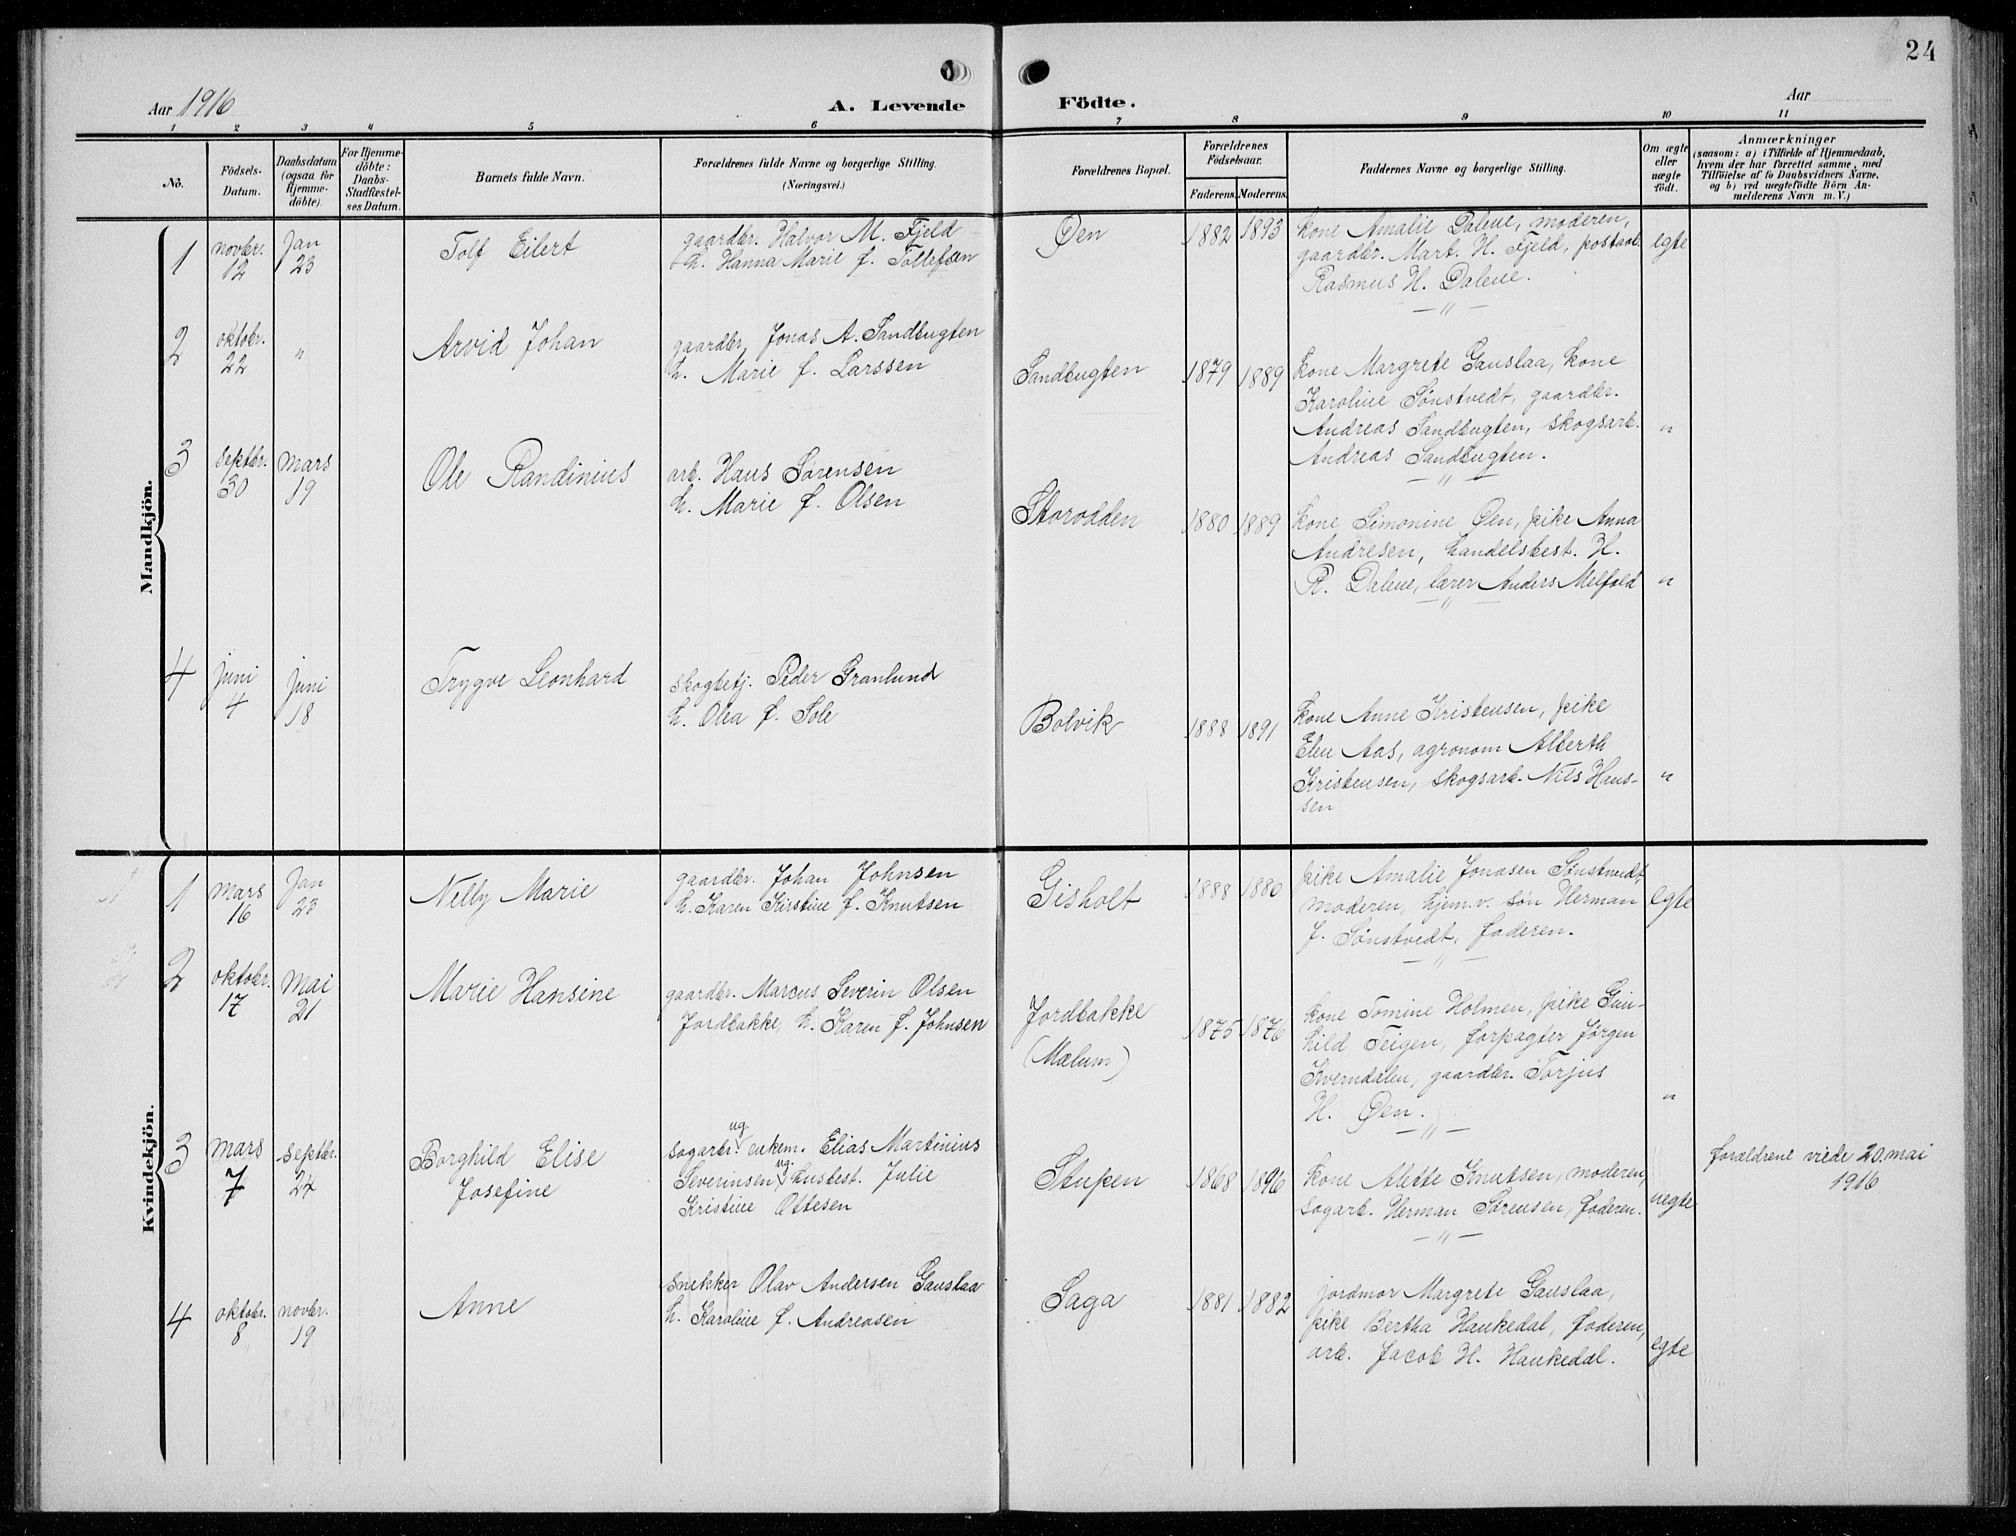 24
Aar 1916
A. Levende
Födte.
Aar
1 2 3 4 5 6 7 8 9 10 11
No.
Födsels-
Datum.
Daabsdatum
(ogsaa for
Hjemme-
döbte).
For Hjemme-
döbte:
Daabs-
Stadfæstel-
ses Datum.
Barnets fulde Navn.
Forældrenes fulde Navne og borgerlige Stilling.
(Næringsvei.)
Forældrenes Bopæl.
Forældrenes
Födselsaar.
Faderens. Moderens.
Faddernes Navne og borgerlige Stilling.
Om ægte
eller
uægte
födt.
Anmærkninger
(saasom: a) i Tilfælde af Hjemmedaab,
hvem der har forrettet samme, med
Tilföielse af to Daabsvidners Navne,
og b) ved uægtefödte Börn An-
melderens Navn m. V.)
Mandkjön.
1
novbr.
12
Jan
23
Tolf Eilert
gaardbr. Halvor M. Fjeld
h. Hanna Marie f. Tollefsen
Øen
1882 1893
kone Amalie Dalene, moderen,
gaardbr. Mart. H. Fjeld, postaab.
Rasmus H. Dalene.
— " —
egte
2
oktobr.
22
"
Arvid Johan
gaardbr. Jonas A. Sandbugten
h. Marie f. Larssen
Sandbugten
1879 1889
kone Margrete Gauslaa, kone
Karoline Sønstvedt, gaardbr.
Andreas Sandbugten, skogsarb.
Andreas Sandbugten.
— " —
"
3
septbr.
30
mars
19
Ole Randinius
arb. Hans Sørensen
h. Marie f. Olsen
Storodden
1880 1889
kone Simonine Øen, pike Anna
Andresen, handelsbest. H.
R. Dalene, lærer Anders Melfald
— " —
"
4
juni
4
juni
18
Trygve Leonhard
skogbetj. Peder Granlund
h. Olea f. Sole
Bolvik
1888 1891
kone Anne Kristensen, pike
Elen Aas, agronom Alberth
Kristensen, skogsarb. Nils Hans-
sen
"
Kvindekjön.
1
mars
16
Jan
23
Nelly Marie
gaardbr. Johan Johnsen
h. Karen Kirstine f. Knutsen
Gisholt
1888 1880
pike Amalie Jonasen Sønstvedt,
moderen, hjem.v. søn Herman
J. Sønstvedt, faderen.
— " —
egte
2
oktobr.
17
Mai
21
Marie Hansine
gaardbr. Marcus Severin Olsen
Jordbakke, h. Karen f. Johnsen
Jordbakke
(Mælum)
1875 1876
kone Tomine Holmen, pike Gun-
hild Teigen, forpagter Jørgen
Kverndalen, gaardbr. Torjus
H. Øen.
— " —
"
3
mars
7
septbr.
24
Borghild Elise
Josefine
sagarbr. ug. enkem. Elias Martinius
Severinsen ug. husbest. Julie
Kristine Ottesen
Stupen
1868 1896
kone Alette Knutsen, moderen,
sagarb. Herman Sørensen, faderen.
— " —
uegte
forældrene viede 20. mai
1916
4
oktobr.
8
novbr.
19
Anne
snekker Olav Andersen Gauslaa
h. Karoline f. Andreasen
Saga
1881 1882
jordmor Margrete Gauslaa,
pike Bertha Haukedal, faderen,
arb. Jacob H. Haukedal.
egte